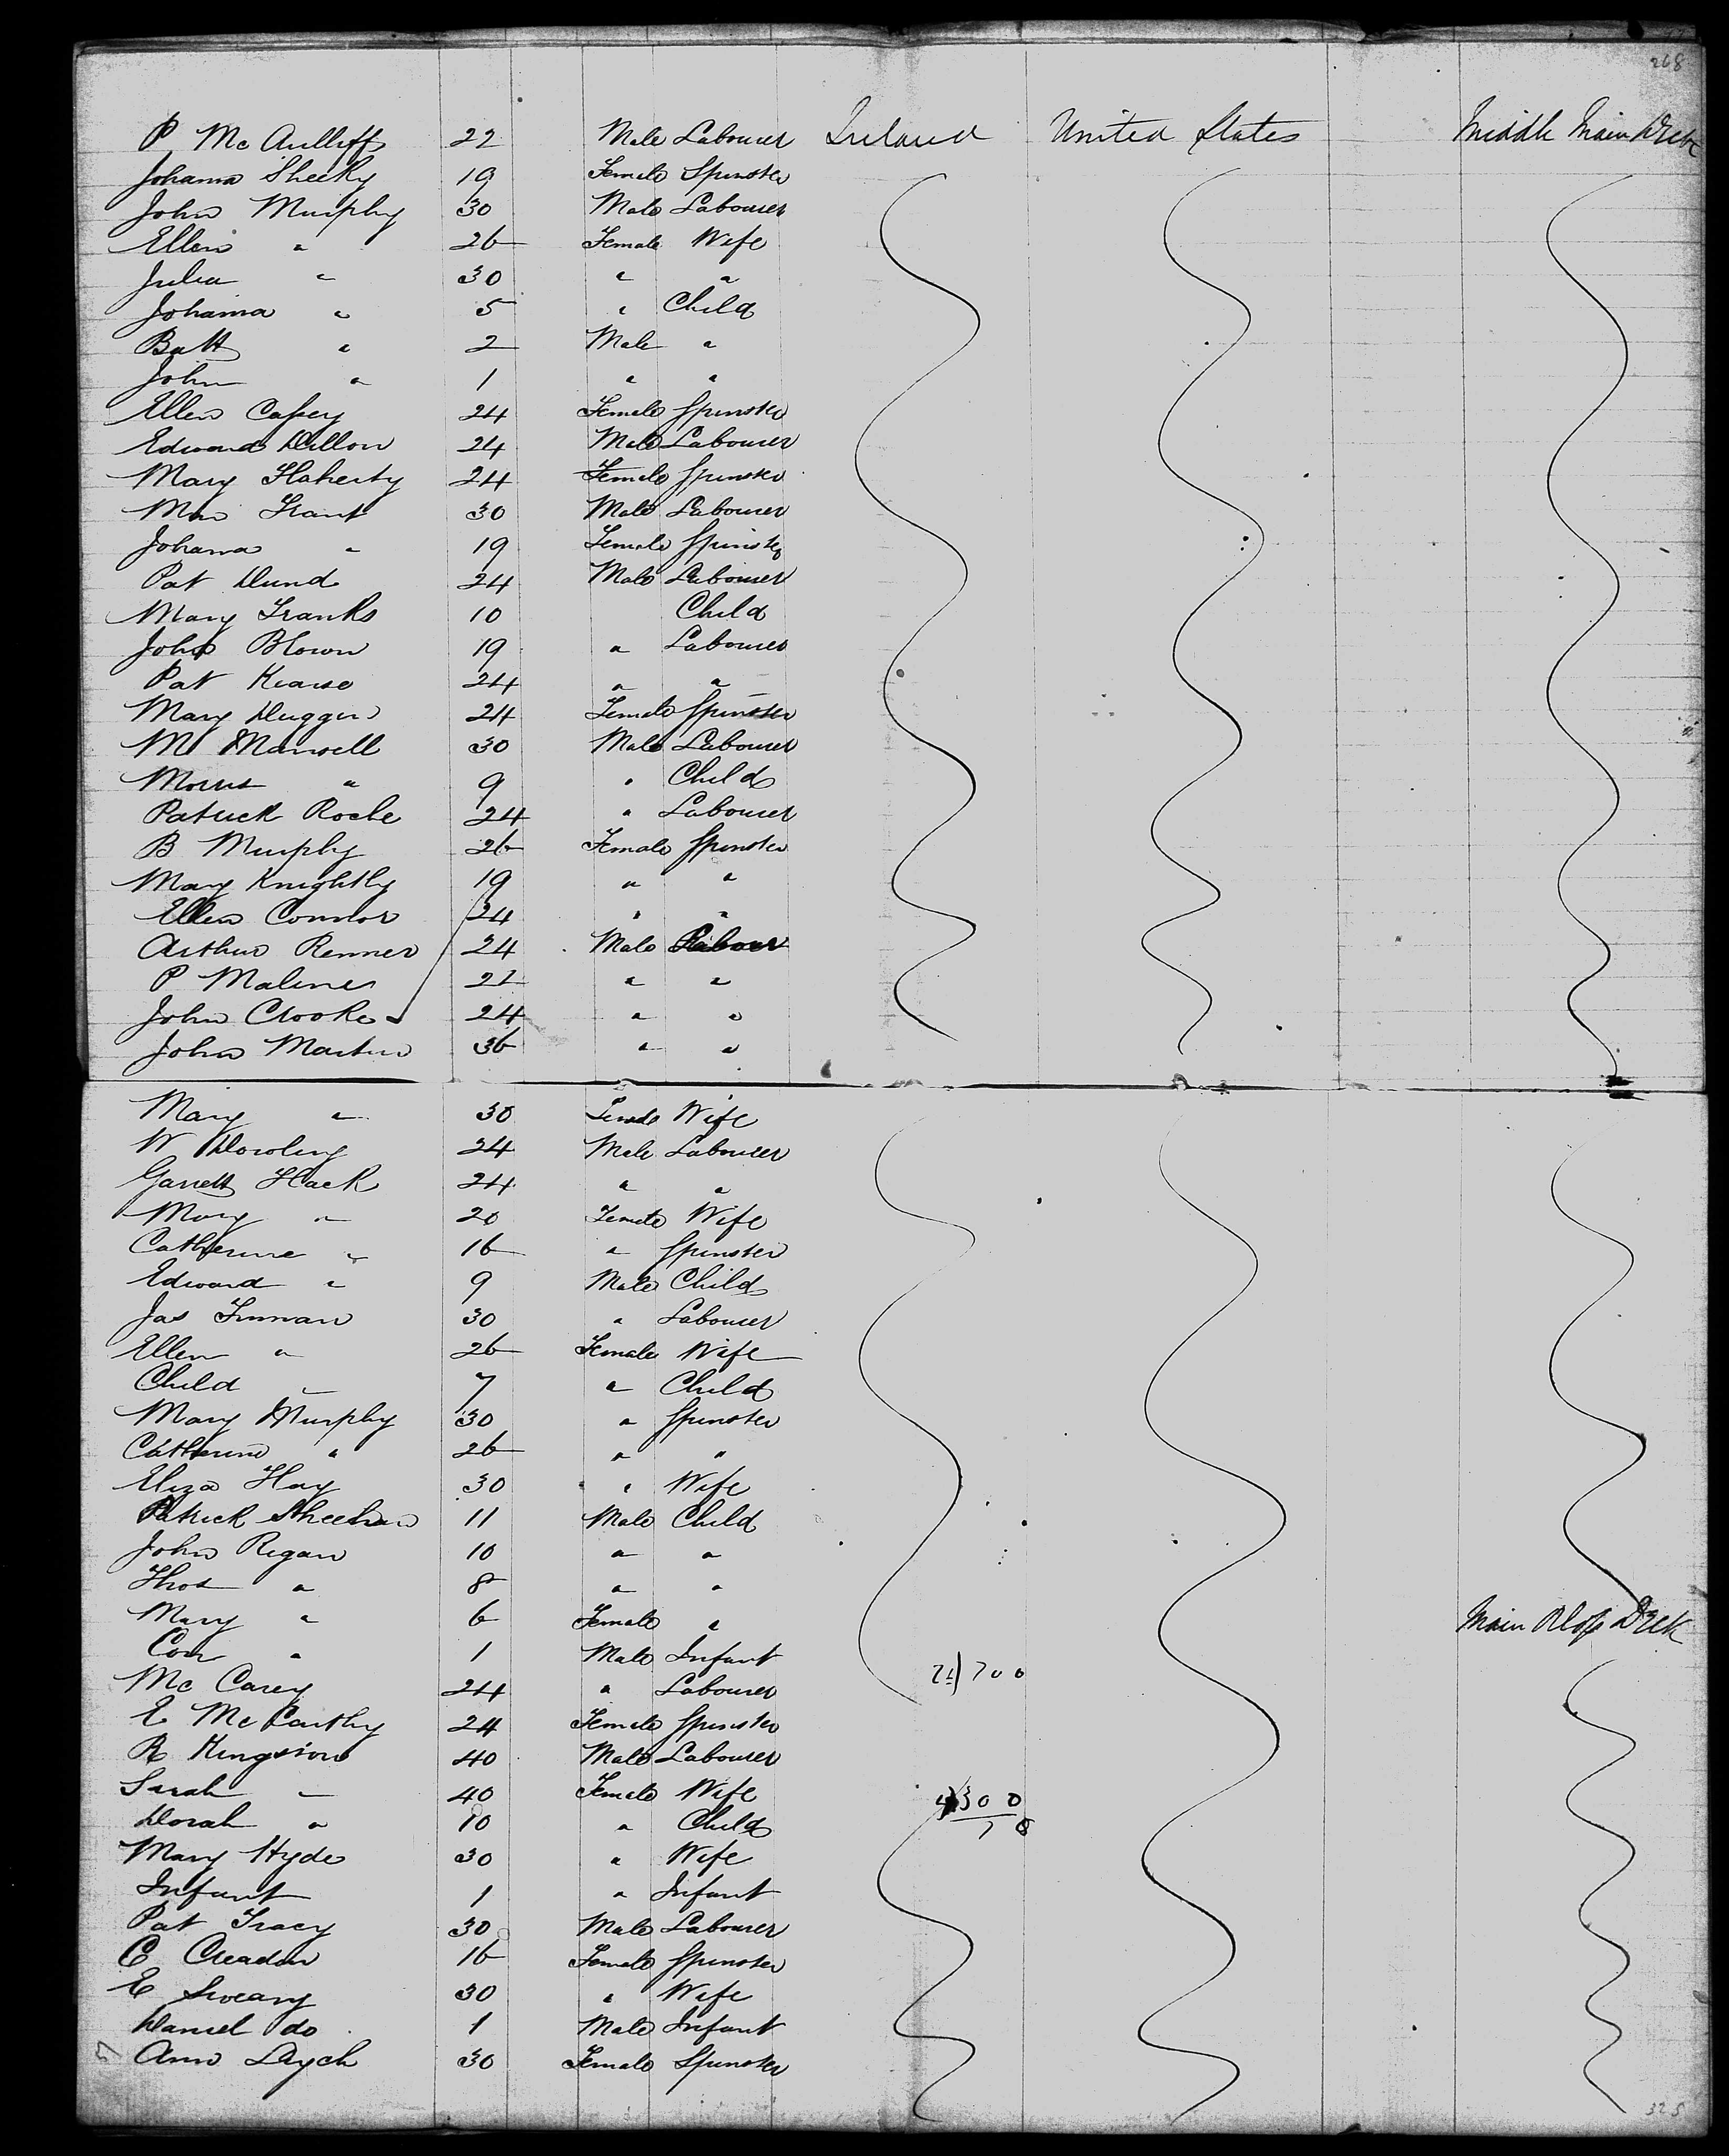 268
P McAulliff 22 Male Labourer Ireland United States Middle Main Deck
Johanna Sheehy 19 Female Spinster
John Murphy 30 Male Labourer
Ellen " 26 Female Wife
Julia " 30 " "
Johanna " 5 " Child
Batt " 2 Male "
John " 1 " "
Ellen Casey 24 Female Spinster
Edward Dillon 24 Male Labourer
Mary Flaherty 24 Female Spinster
Grant 30 Male Labourer
Johana " 19 Female Spinster
Pat Dund 24 Male Labourer
Mary Franks 10 Child
John Brown 19 " Labourer
Pat Kearse 24 " "
Mary Duggin 24 Female Spinster
M Manwell 30 Male Labourer
Morris " 9 " Child
Patrick Roche 24 " Labourer
B Murphy 26 Female Spinster
Mary Knightly 19 " "
Ellen Connor 24 " "
Arthur Renner 24 Male Labour
P Maline " "
John Crooke 24 " "
John Martin 36 " "
Mary " 30 Female Wife
W Dowling 24 Male Labourer
Garrett Hack 24 " "
Mary " 20 Female Wife
Catherine " 16 " Spinster
Edward " 9 Male Child
Jas Finnan 30 " Labourer
Ellen " 26 Female Wife
Child " 7 " Child
Mary Murphy 30 " Spinster
Catherine " 26 " "
Eliza Hay 30 " Wife
Patrick Sheehan 11 Male Child
John Regan 10 " "
Thos " 8 " "
Mary " 6 Female " Main Deck
Con " 1 Male Infant 700
Mc Carey 24 " Labourer
E McCarthy 24 Female Spinster
R Kingston 40 Male Labourer
Sarah " 40 Female Wife 300
Dorah " 10 " Child
Mary Hyde 30 " Wife
Infant 1 " Infant
Pat Tracy 30 Male Labourer
C Creadon 16 Female Spinster
E Sweany 30 " Wife
Daniel do 1 Male Infant
Ann Lynch 30 Female Spinster
325